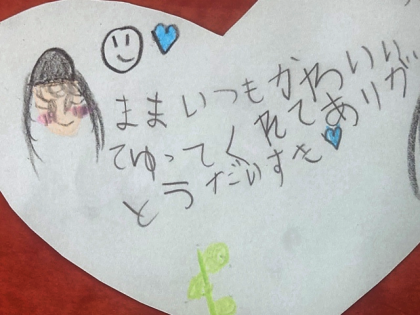 ままいつもかわいい
てゆってくれてありが
とうだいすき